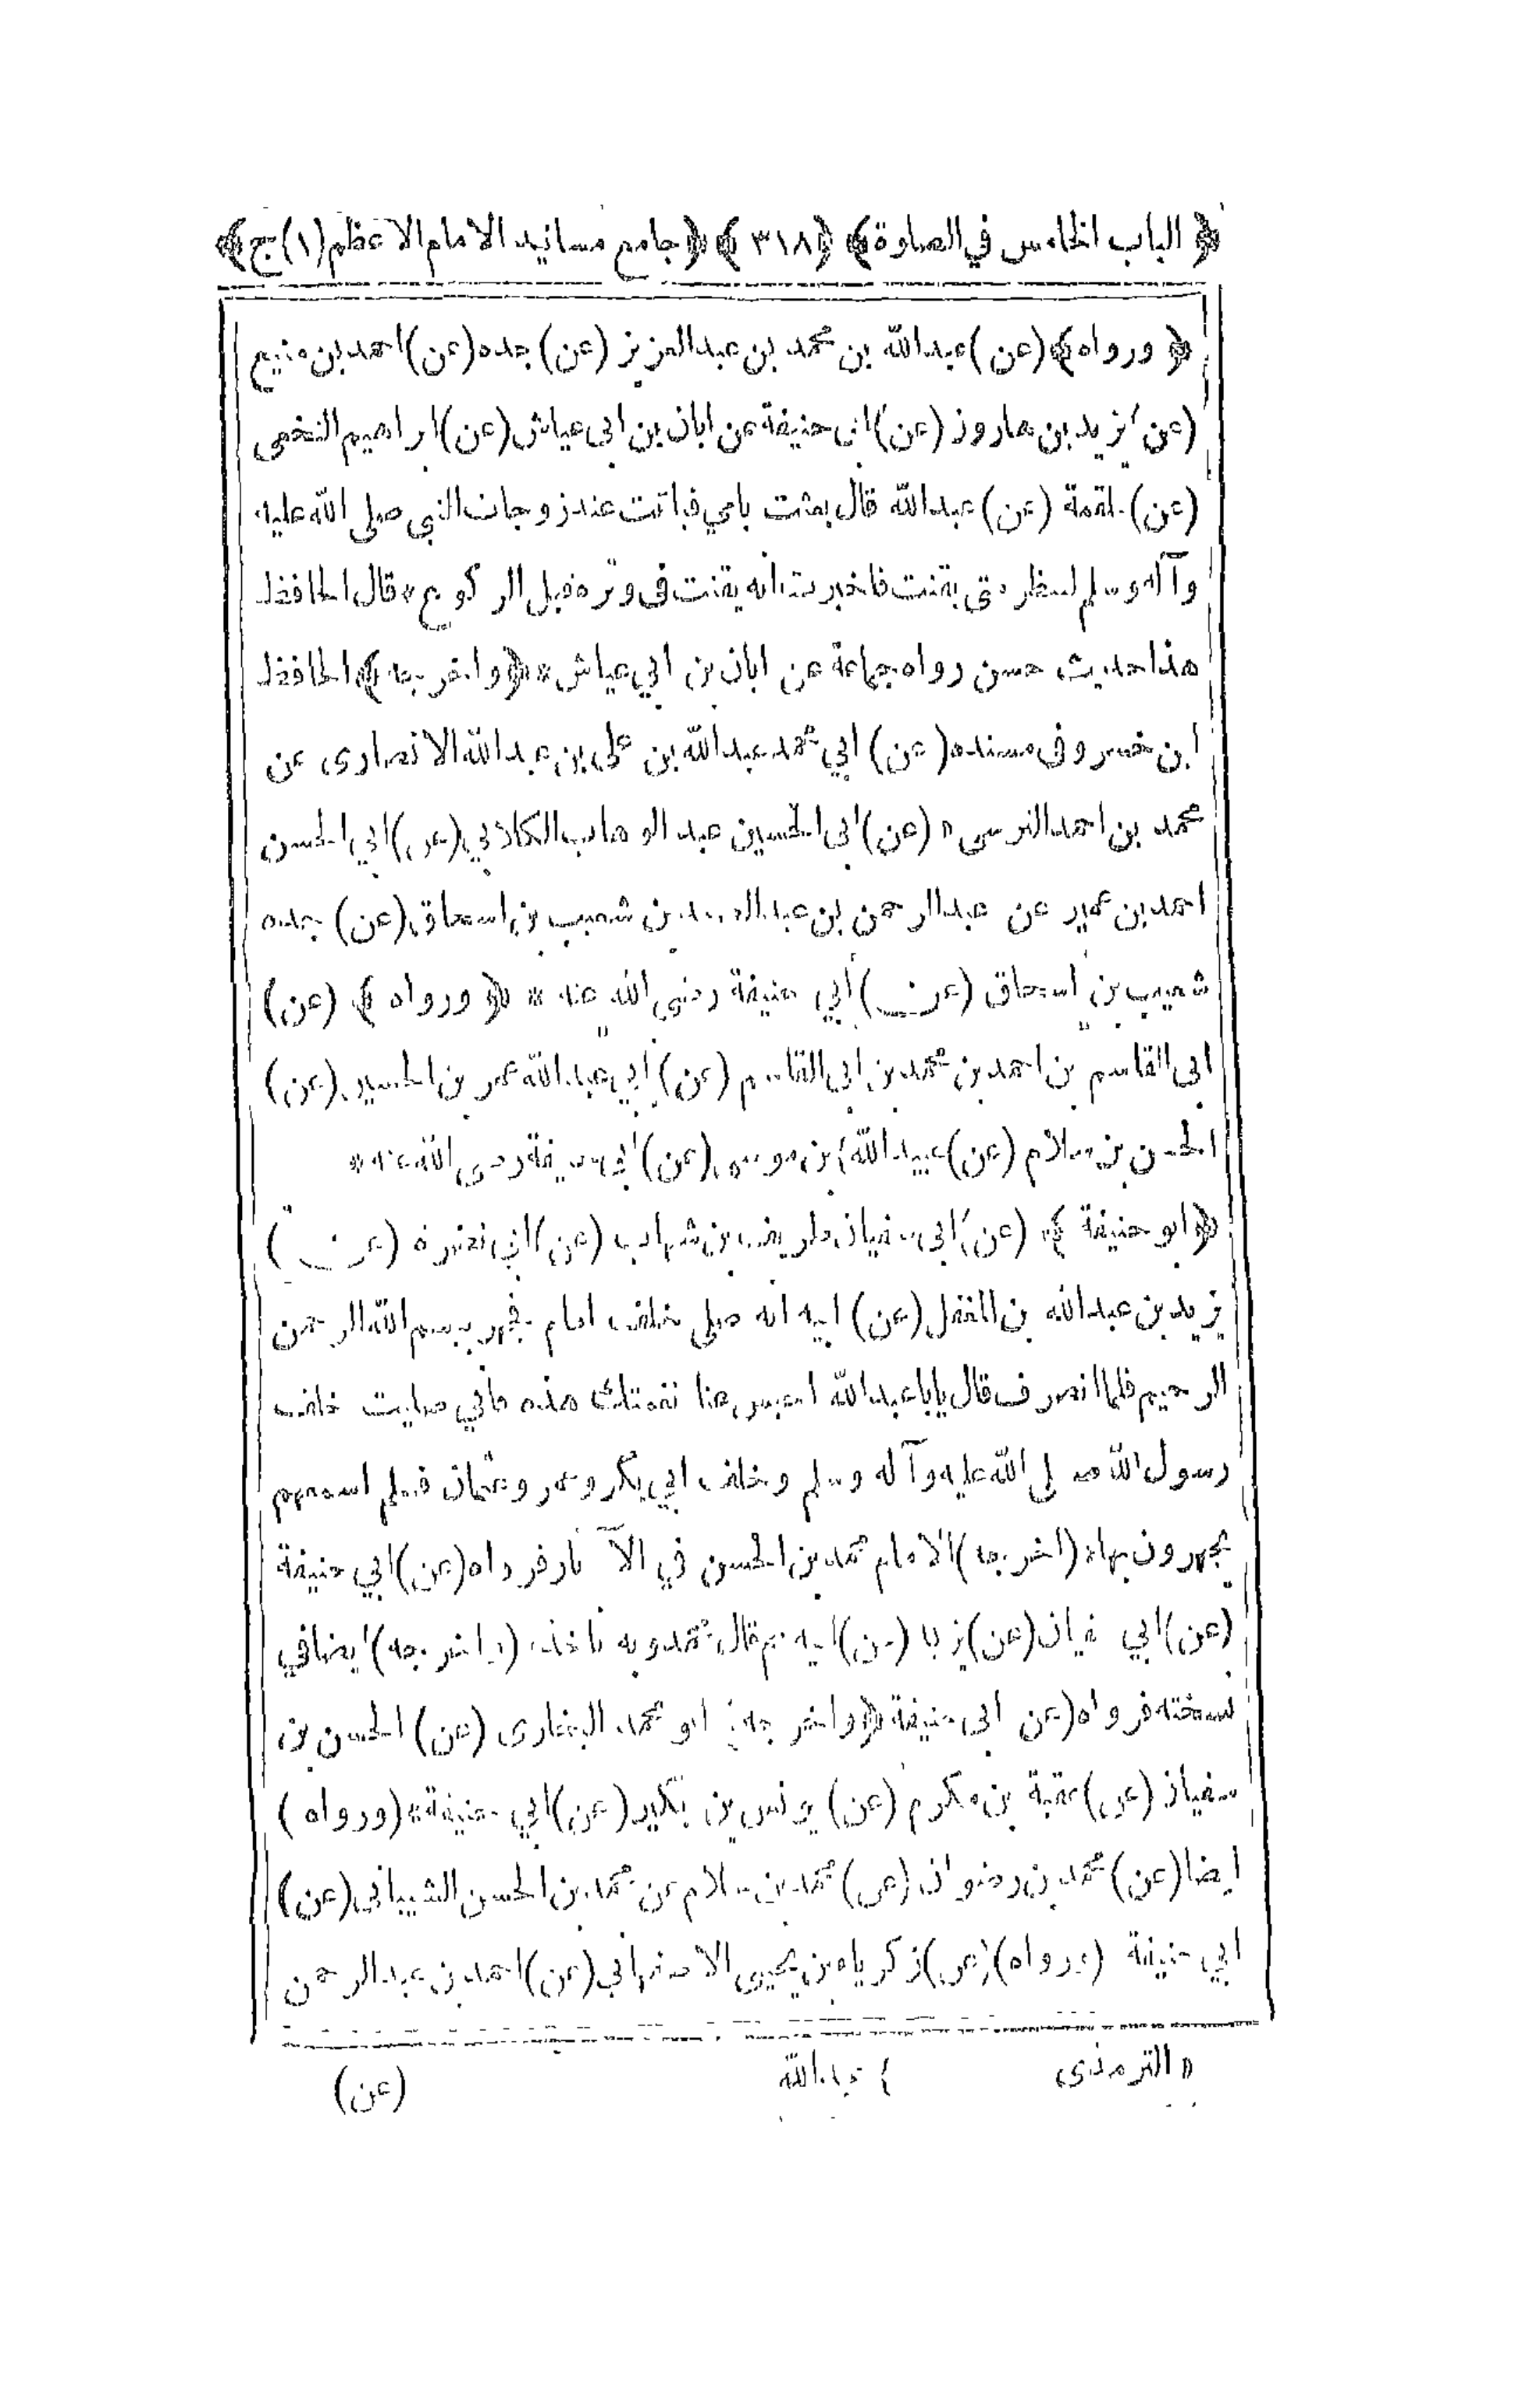 ﴿ الباب الخامس في الصلوة ﴾ ﴿ ٣١٨ ﴾ ﴿ جامع مسانيد الامام الاعظم (١) ج ﴾
﴿ ورواه ﴾ (عن) عبدالله بن محمد بن عبدالعزيز (عن) جده (عن) احمد بن منيع
(عن) يزيد بن هارون (عن) ابى حنيفة عن ابان بن ابى عياش (عن) ابراهيم النخعى
(عن) علقمة (عن) عبدالله قال بعثت بامي فباتت عند زوجات النبي صلى الله عليه
وآله وسلم لتنظر متى يقنت فاخبرت انه يقنت فى وتره قبل الركوع * قال الحافظ
هذا حديث حسن رواه جماعة عن ابان بن ابي عياش * ﴿ واخرجه ﴾ الحافظ
ابن خسرو فى مسنده (عن) ابي محمد عبدالله بن على بن عبدالله الانصارى عن
محمد بن احمد النرسى « (عن) ابى الحسين عبد الوهاب الكلابي (عن) ابي الحسن
احمد بن عمير عن عبدالرحمن بن عبد الصمد بن شعيب بن اسحاق (عن) جده
شعيب بن اسحاق (عن) أبي حنيفة رضي الله عنه * ﴿ ورواه ﴾ (عن)
ابى القاسم بن احمد بن محمد بن ابى القاسم (عن) ابي عبدالله عمر بن الحسين (عن)
الحسن بن سلام (عن) عبيدالله بن موسى (عن) ابي حنيفة رضى الله عنه *
﴿ ابو حنيفة ﴾ (عن) ابى سفيان طريف بن شهاب (عن) ابي نضرة (عن)
يزيد بن عبدالله بن المغفل (عن) ابيه انه صلى خلف امام فجهر ببسم الله الرحمن
الرحيم فلما انصرف قال يا با عبدالله احبس عنا نغمتك هذه فاني صليت خلف
رسول الله صلى الله عليه وآله وسلم وخلف ابي بكر وعمر وعثمان فلم اسمعهم
يجهرون بها * (اخرجه) الامام محمد بن الحسن في الآثار فرواه (عن) ابي حنيفة
(عن) ابي سفيان (عن) يزيد (عن) ابيه ثم قال محمد وبه ناخذ (واخرجه) ايضا في
نسخته فرواه (عن ابى حنيفة ﴿ واخرجه ﴾ ابو محمد البخارى (عن) الحسن بن
سفيان (عن) عقبة بن مكرم (عن) يونس بن بكير (عن) ابي حنيفة * (ورواه)
ايضا (عن) محمد بن رضوان (عن) محمد بن سلام عن محمد بن الحسن الشيبانى (عن)
ابي حنيفة (ورواه) (عن) زكرياء بن يحيى الاصفهانى (عن) احمد بن عبدالرحمن
« الترمذى عبدالله (عن)